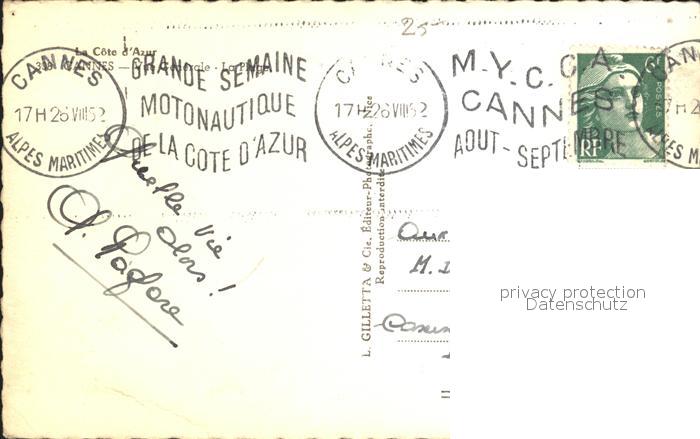 25
La Côte d'Azur
CANNES — Vue Générale - La Plage
CANNES
17H 28 VIII 52
ALPES MARITIMES
GRANDE SEMAINE
MOTONAUTIQUE
DE LA COTE D'AZUR
CANNES
17H 28 VIII 52
ALPES MARITIMES
M.Y.C.C.A.
CANNES
AOUT - SEPTEMBRE
POSTES
RF
Quelle vie
alors!
L. GILLETTA & Cie, Éditeur-Photographe, Nice
Reproduction interdite
Aux
M.
privacy protection
Datenschutz